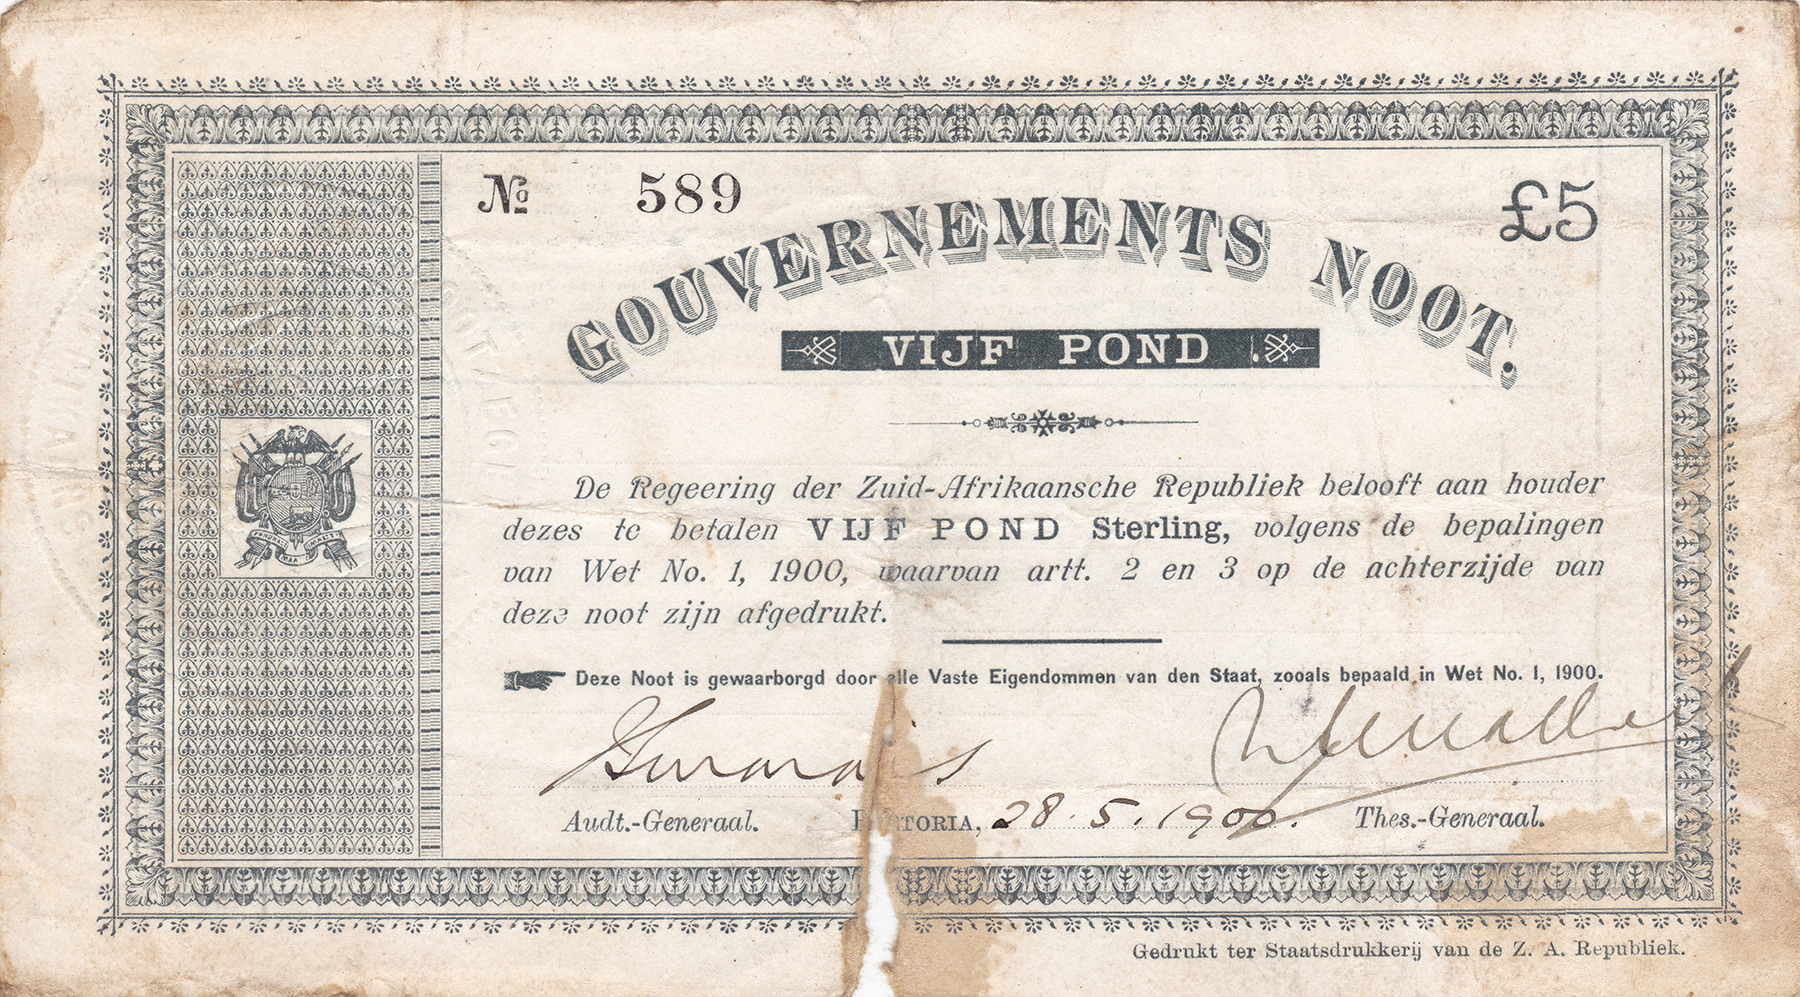 № 589
£5
GOUVERNEMENTS NOOT.
VIJF POND
De Regeering der Zuid-Afrikaansche Republiek belooft aan houder
dezes te betalen VIJF POND Sterling, volgens de bepalingen
van Wet No. 1, 1900, waarvan artt. 2 en 3 op de achterzijde van
deze noot zijn afgedrukt.
Deze Noot is gewaarborgd door alle Vaste Eigendommen van den Staat, zooals bepaald in Wet No. 1, 1900.
Audt.-Generaal. PRETORIA, 28.5.1900. Thes.-Generaal.
Gedrukt ter Staatsdrukkerij van de Z. A. Republiek.